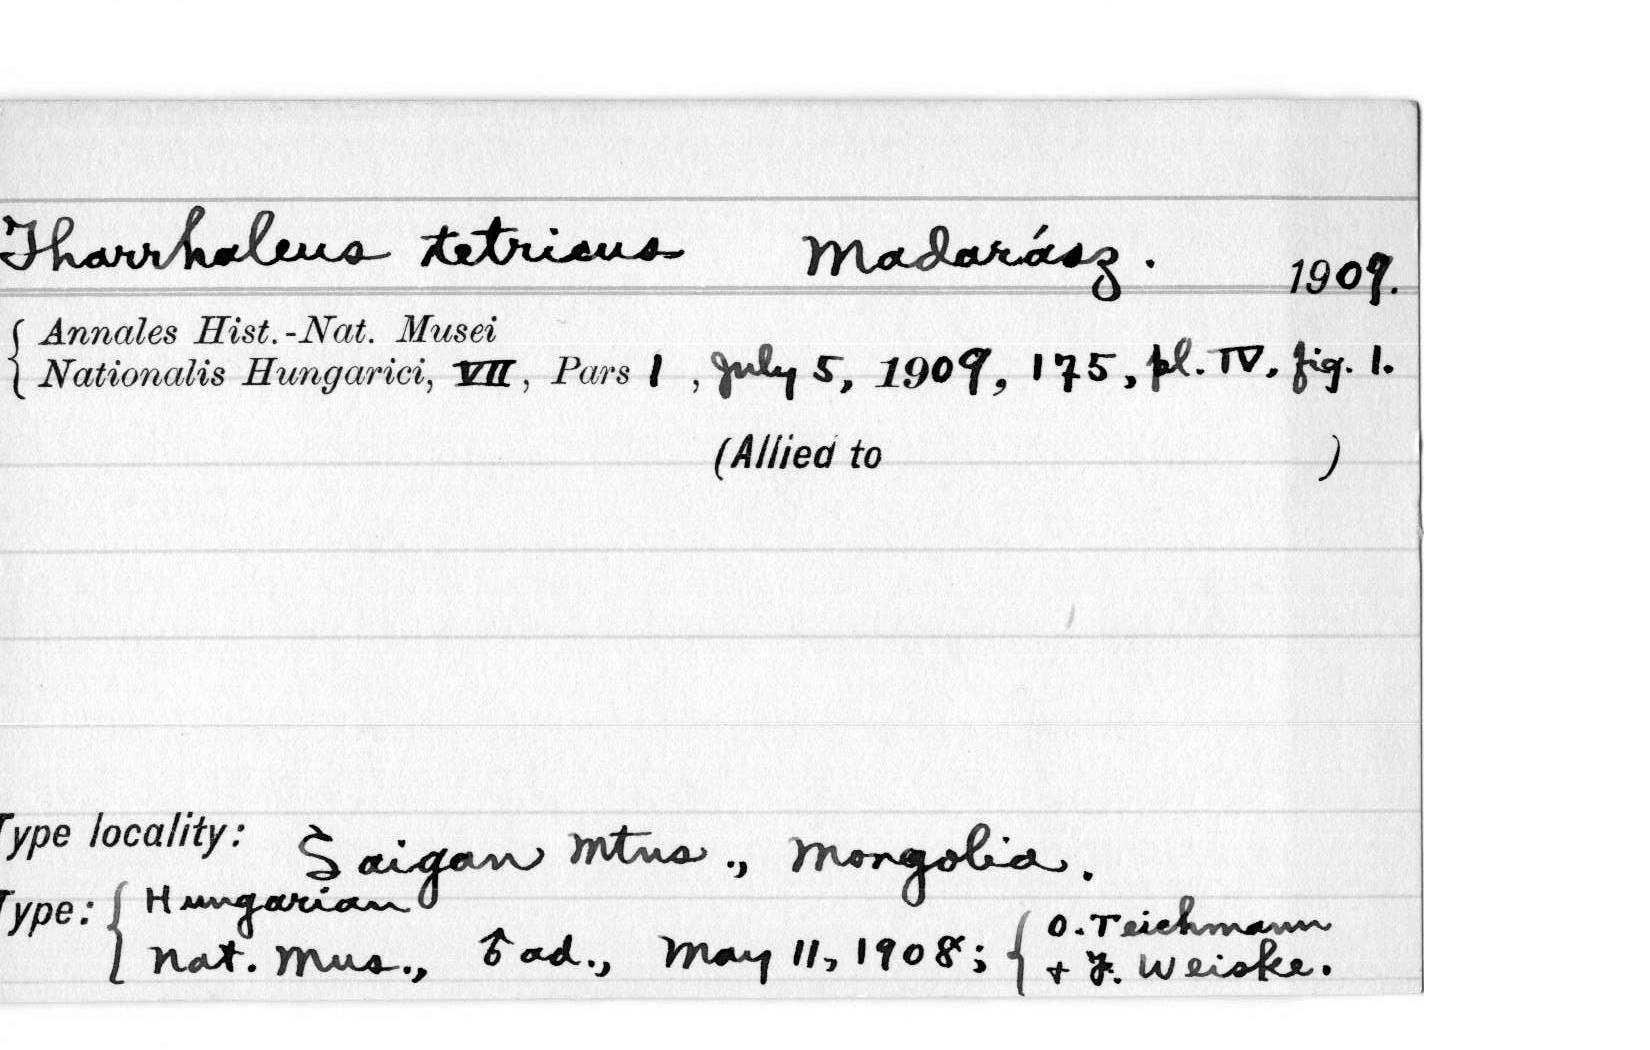 Tharrhaleus tetricus Madarász. 1909.
Annales Hist.-Nat. Musei
Nationalis Hungarici, VII, Pars 1, July 5, 1909, 175, pl. IV, fig. 1.
(Allied to )
Type locality: Saigan Mtns., Mongolia.
Type: Hungarian
Nat. Mus., ♂ ad., May 11, 1908; O. Teichmann
+ F. Weiske.